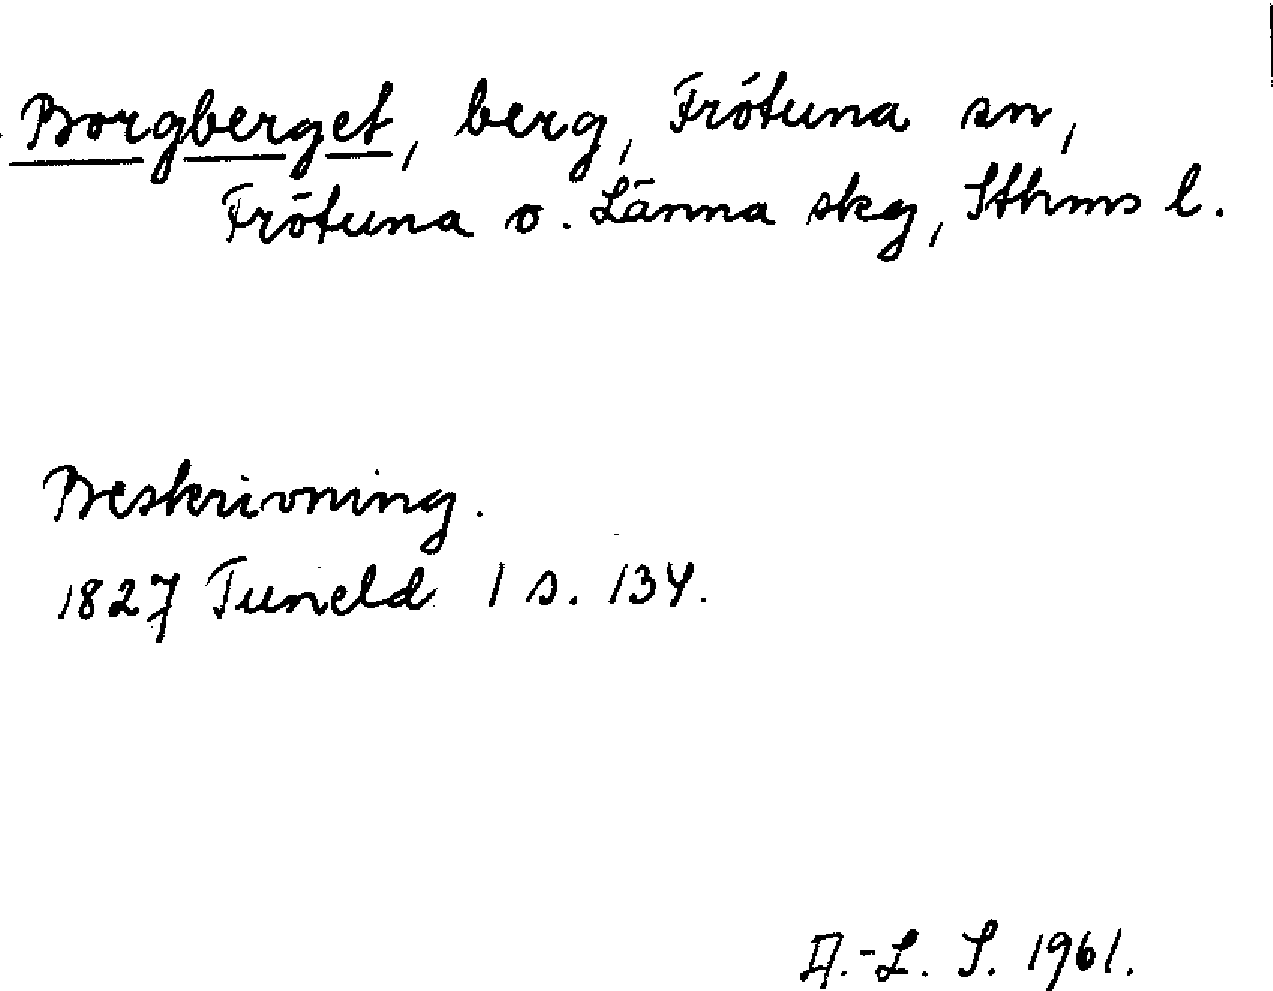 Borgberget, berg, Frötuna sn,
Frötuna o. Länna skg, Sthms l.
Beskrivning.
1827 Tuneld 1 s. 134.
A.-L. S. 1961.